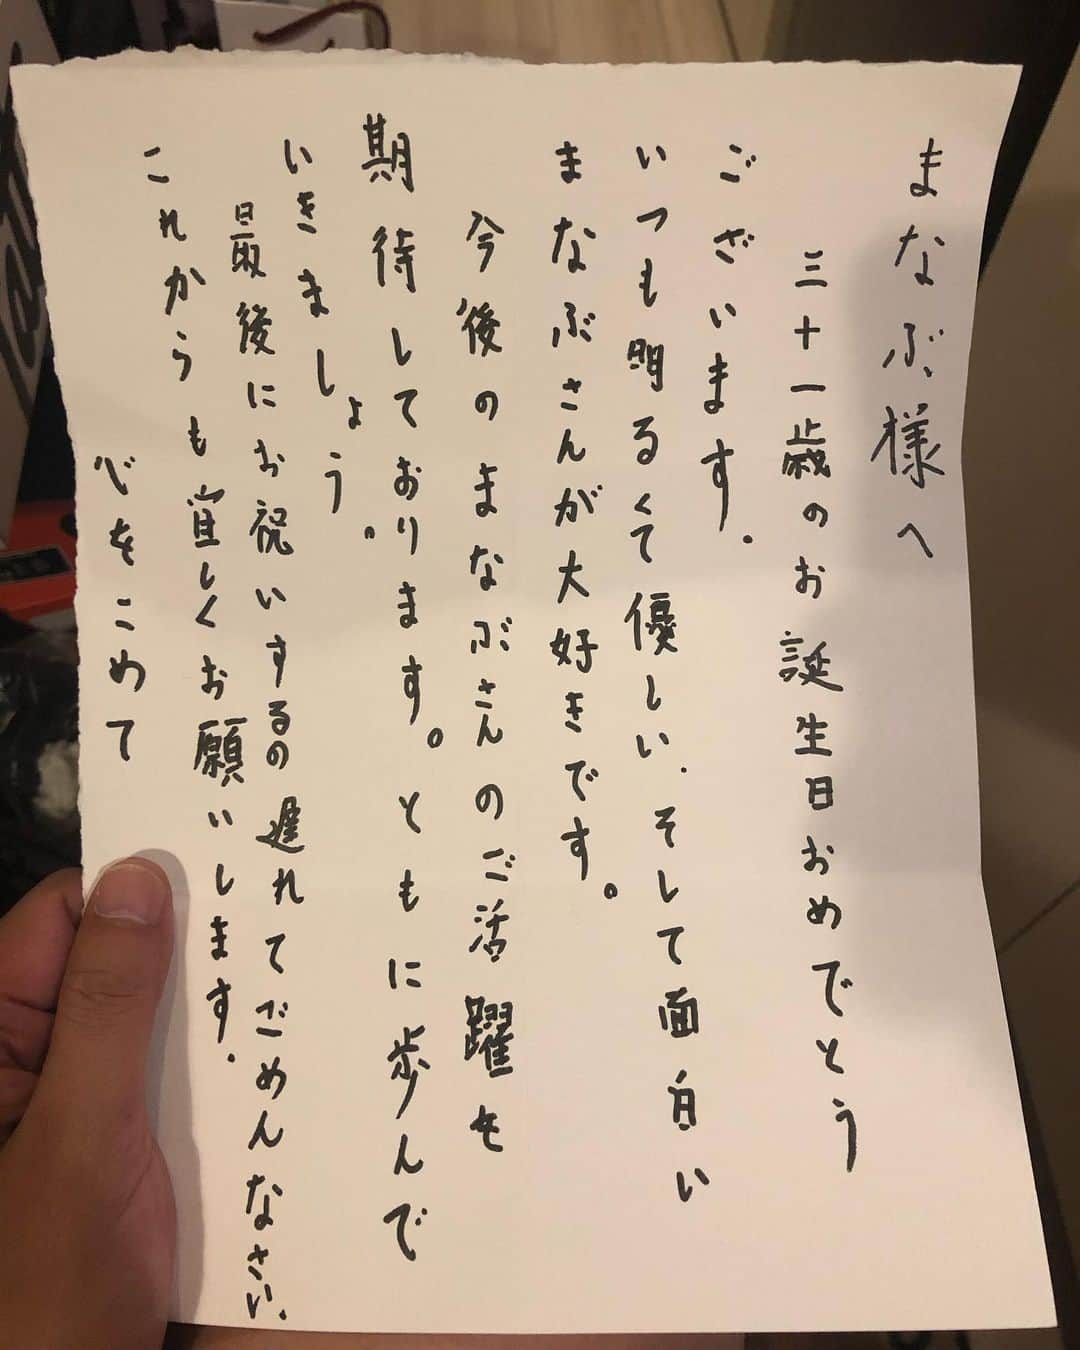 まなぶ様へ
三十一歳のお誕生日おめでとう
ございます.
いつも明るくて優しい.そして面白い
まなぶさんが大好きです。
今後のまなぶさんのご活躍を
期待しております。ともに歩んで
いきましょう。
最後にお祝いするの遅れてごめんなさい.
これからも宜しくお願いします.
心をこめて